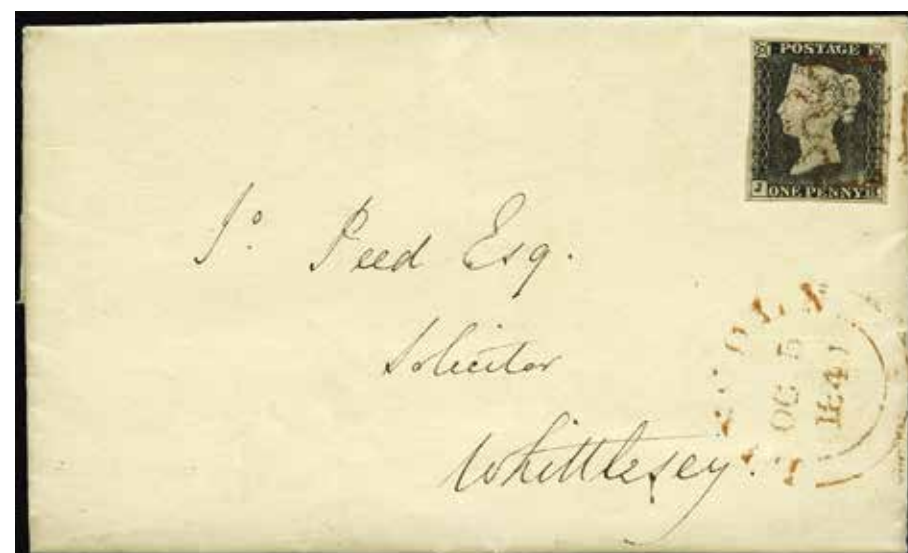 POSTAGE
J ONE PENNY
Jº Peed Esq.
Solicitor
Whittlesey.
OC 5